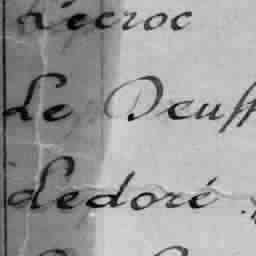 Lécroc
Le Deuff
Ledoré